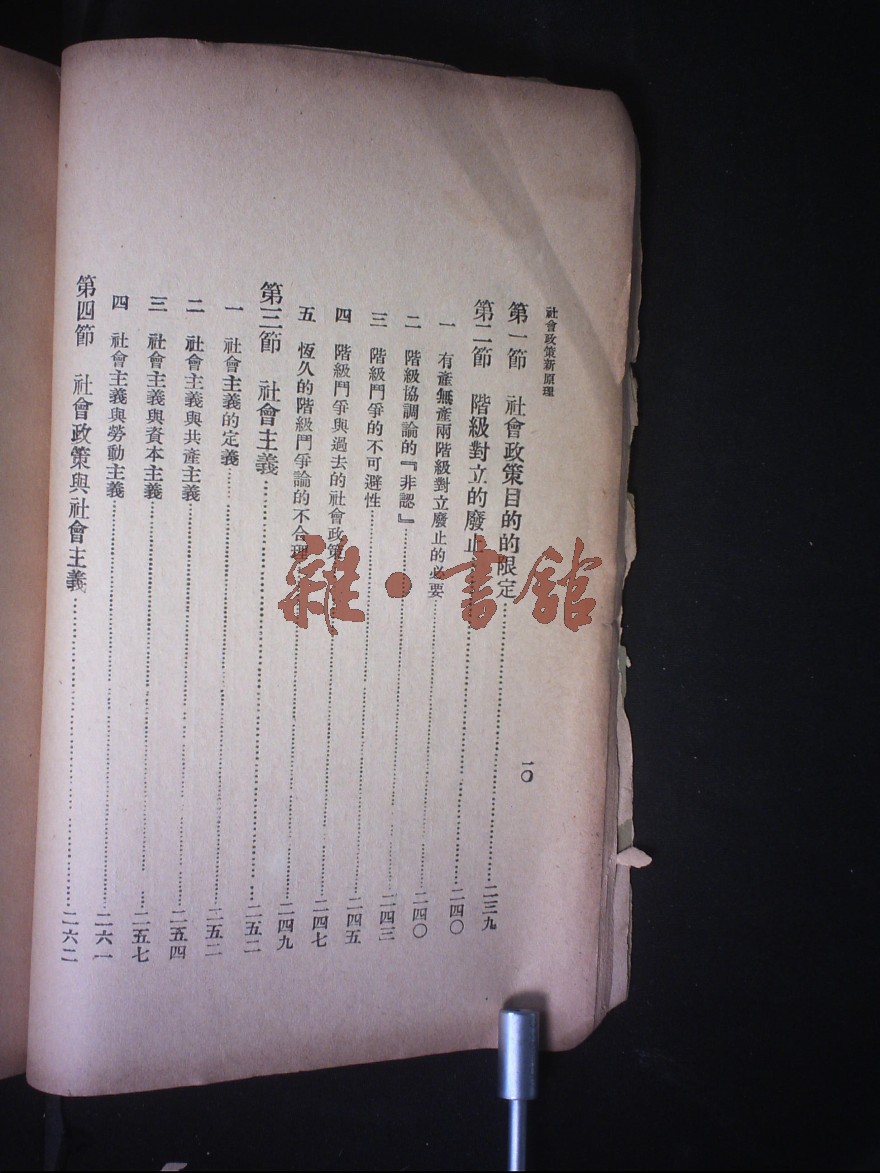 社會政策新原理 一〇
第一節 社會政策目的的限定……二三九
第二節 階級對立的廢止……二四〇
一 有產無產兩階級對立廢止的必要……二四〇
二 階級協調論的『非認』……二四三
三 階級鬥爭的不可避性……二四五
四 階級鬥爭與過去的社會政策……二四七
五 恆久的階級鬥爭論的不合理……二四九
第三節 社會主義……二五二
一 社會主義的定義……二五二
二 社會主義與共產主義……二五四
三 社會主義與資本主義……二五七
四 社會主義與勞動主義……二六一
第四節 社會政策與社會主義……二六二
雜·書館